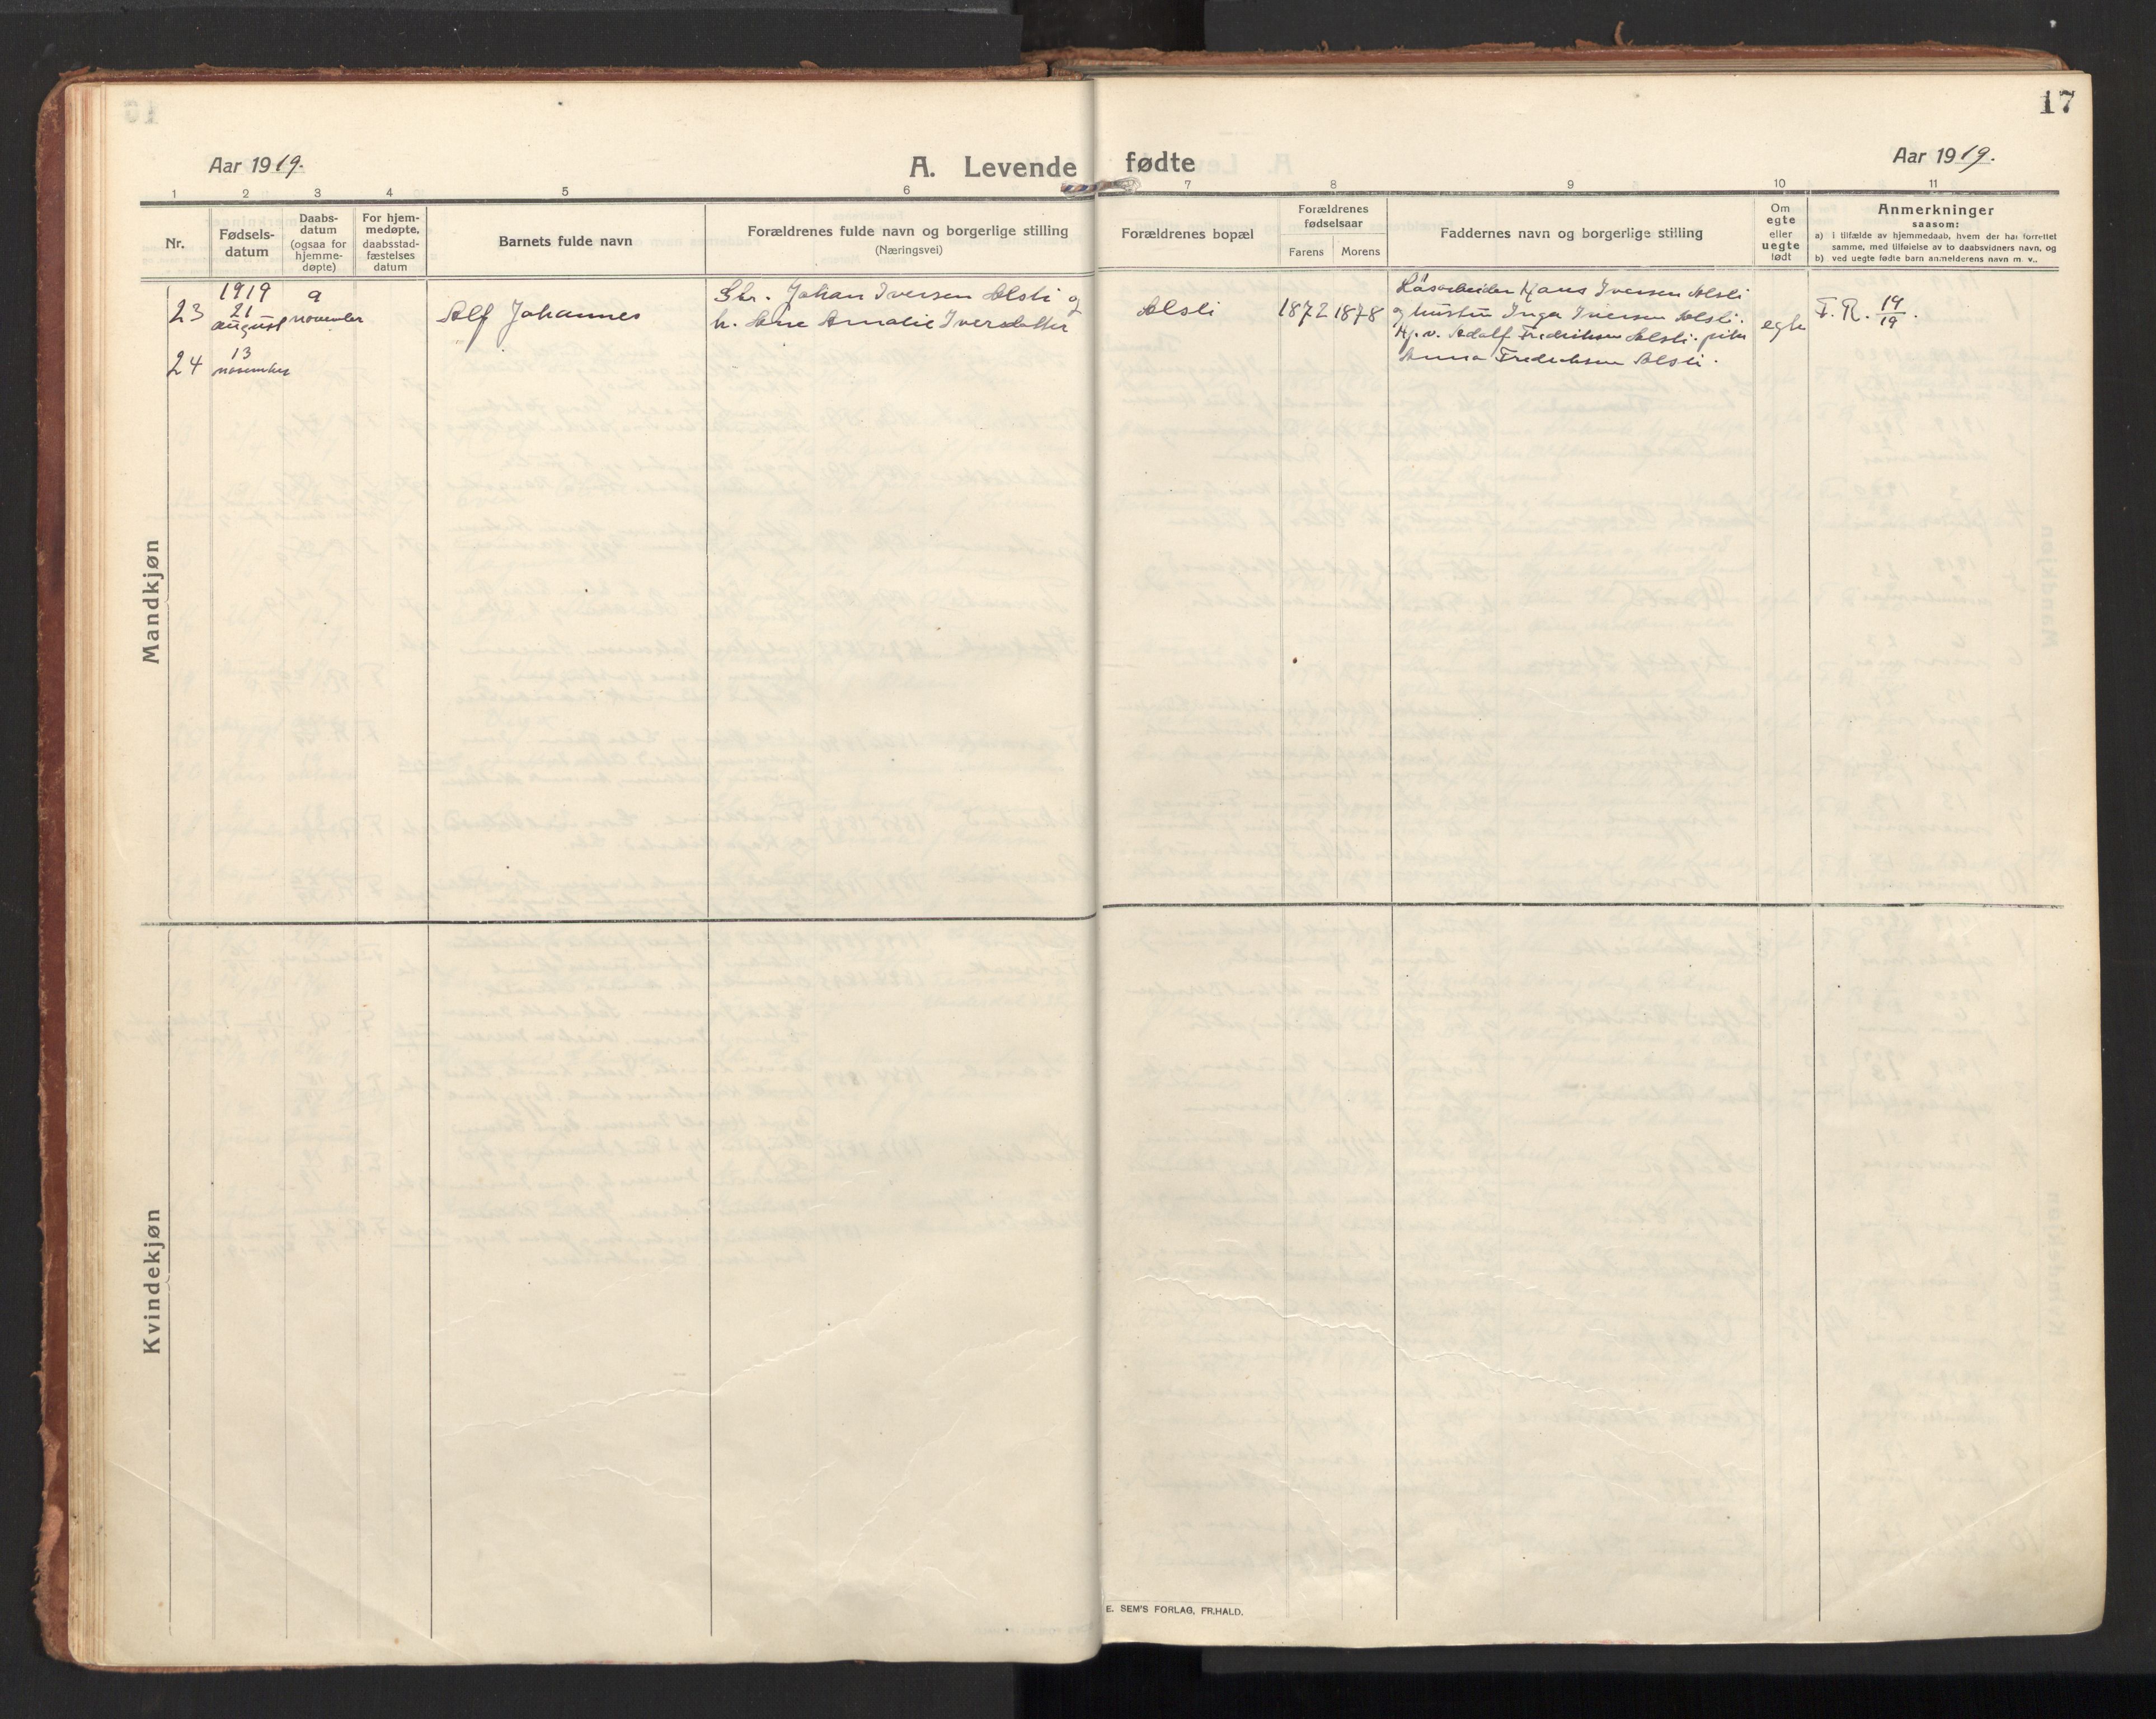 17
Aar 1919.
A. Levende fødte
Aar 1919.
1 2 3 4 5 6 7 8 9 10 11
Nr.
Fødsels-
datum
Daabs-
datum
(ogsaa for
hjemme-
døpte)
For hjem-
medøpte,
daabsstad-
fæstelses
datum
Barnets fulde navn
Forældrenes fulde navn og borgerlige stilling
(Næringsvei)
Forældrenes bopæl
Forældrenes
fødselsaar
Farens Morens
Faddernes navn og borgerlige stilling
Om
egte
eller
uegte
født
Anmerkninger
saasom:
a) i tilfælde av hjemmedaab, hvem der har forrettet
samme, med tilføielse av to daabsvidners navn, og
b) ved uegte fødte barn anmelderens navn m. v..
Mandkjøn
23
1919
21
august
9
november
Alf Johannes
Gbr. Johan Iversen Alsli og
h. Ane Amalie Iversdatter
Alsli
1872 1878
Hans Iversen Alsli
og hustru Inga Iversen Alsli.
Adolf Fredriksen Alsli. pike
Anna Fredriksen Alsli.
egte
F. R. 19/19.
24
13
november
Kvindekjøn
E. SEM'S FORLAG, FR.HALD.